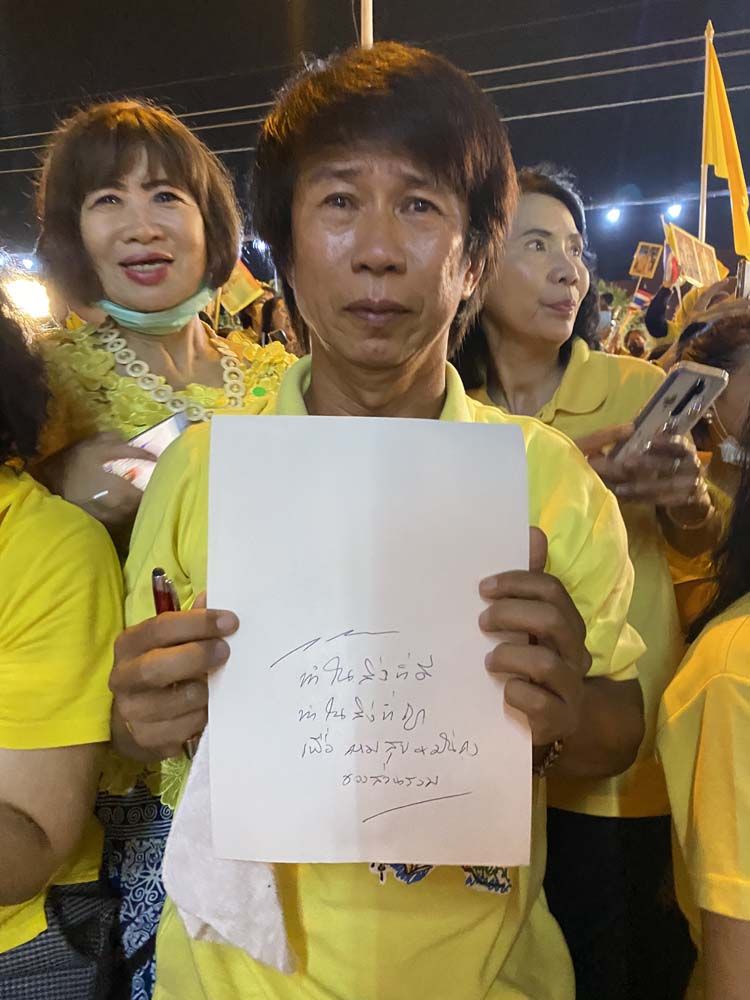 ทำในสิ่งที่ดี
ทำในสิ่งที่ถูก
เพื่อความสุข & มั่นคง
ของส่วนรวม